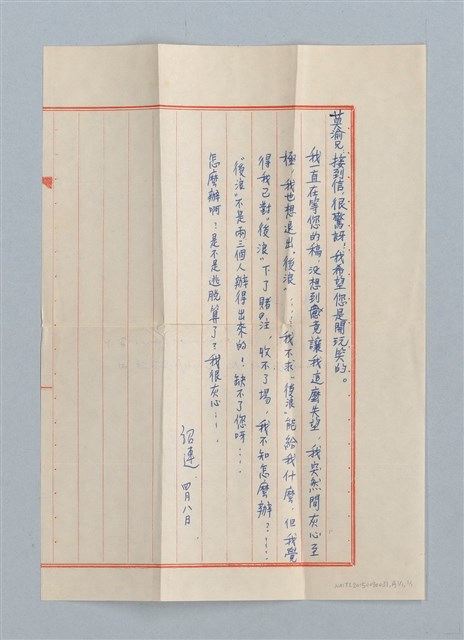 莫渝兄：接到信，很驚訝！我希望您是開玩笑的。
我一直在等您的稿，没想到您竟讓我這麼失望，我突然間灰心至
極，我也想退出"後浪"……我不求"後浪"能給我什麼，但我覺
得我已對"後浪"下了賭注，收不了場，我不知怎麼辦？……
"後浪"不是兩三個人辦得出來的！缺不了您呀……
怎麼辦啊！是不是逃脫算了？我很灰心……
紹連 四月八日